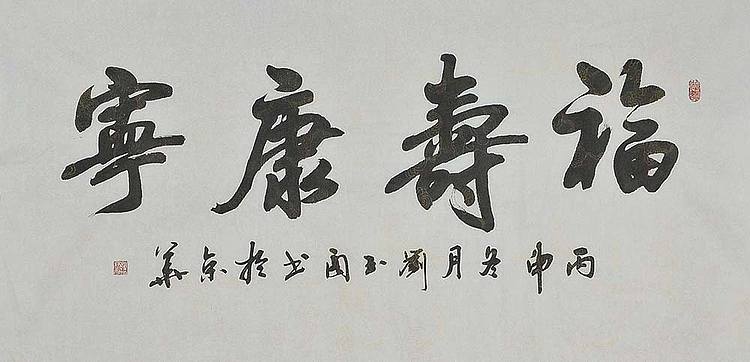 福壽康寧
丙申冬月劉玉囝书於京華